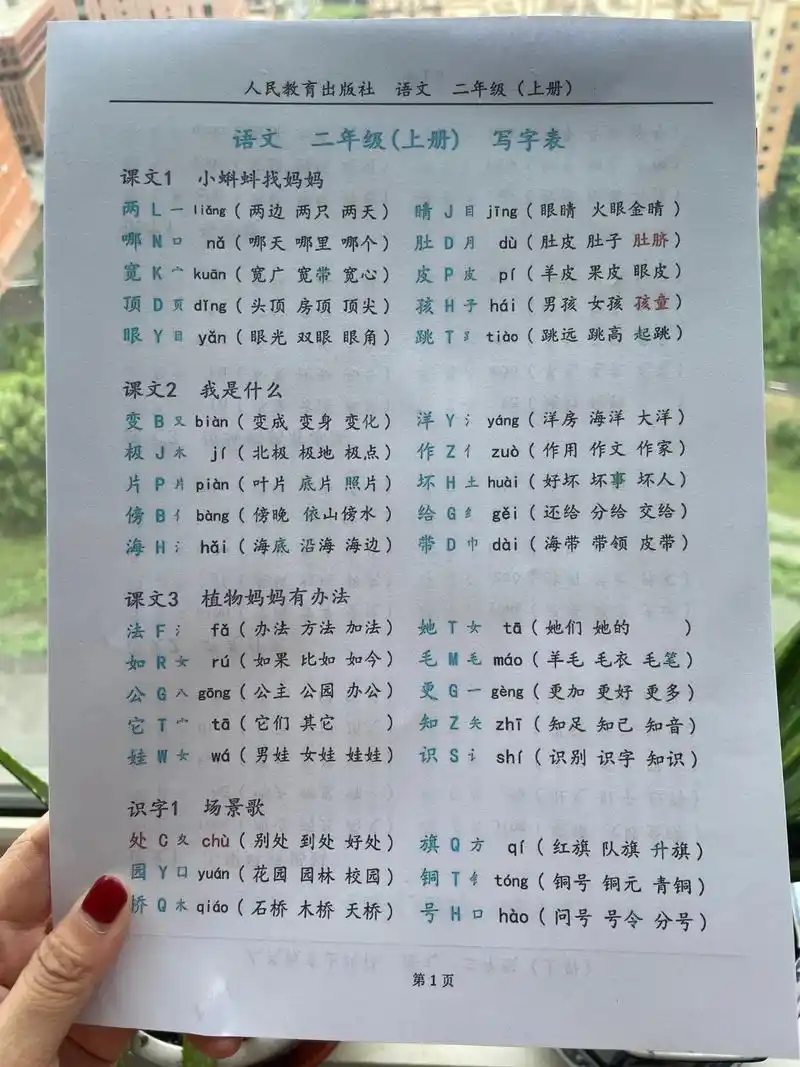 人民教育出版社 语文 二年级（上册）
语文 二年级(上册) 写字表
课文1 小蝌蚪找妈妈
两 L 一 liǎng（两边 两只 两天） 睛 J 目 jīng（眼睛 火眼金睛）
哪 N 口 nǎ（哪天 哪里 哪个） 肚 D 月 dù（肚皮 肚子 肚脐）
宽 K 宀 kuān（宽广 宽带 宽心） 皮 P 皮 pí（羊皮 果皮 眼皮）
顶 D 页 dǐng（头顶 房顶 顶尖） 孩 H 子 hái（男孩 女孩 孩童）
眼 Y 目 yǎn（眼光 双眼 眼角） 跳 T ⻊ tiào（跳远 跳高 起跳）
课文2 我是什么
变 B 又 biàn（变成 变身 变化） 洋 Y 氵 yáng（洋房 海洋 大洋）
极 J 木 jí（北极 极地 极点） 作 Z 亻 zuò（作用 作文 作家）
片 P 片 piàn（叶片 底片 照片） 坏 H 土 huài（好坏 坏事 坏人）
傍 B 亻 bàng（傍晚 依山傍水） 给 G 纟 gěi（还给 分给 交给）
海 H 氵 hǎi（海底 沿海 海边） 带 D 巾 dài（海带 带领 皮带）
课文3 植物妈妈有办法
法 F 氵 fǎ（办法 方法 加法） 她 T 女 tā（她们 她的 ）
如 R 女 rú（如果 比如 如今） 毛 M 毛 máo（羊毛 毛衣 毛笔）
公 G 八 gōng（公主 公园 办公） 更 G 一 gèng（更加 更好 更多）
它 T 宀 tā（它们 其它 ） 知 Z 矢 zhī（知足 知己 知音）
娃 W 女 wá（男娃 女娃 娃娃） 识 S 讠 shí（识别 识字 知识）
识字1 场景歌
处 C 夂 chù（别处 到处 好处） 旗 Q 方 qí（红旗 队旗 升旗）
园 Y 口 yuán（花园 园林 校园） 铜 T 钅 tóng（铜号 铜元 青铜）
桥 Q 木 qiáo（石桥 木桥 天桥） 号 H 口 hào（问号 号令 分号）
第 1 页